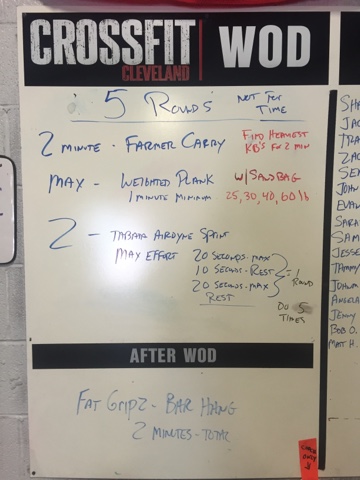 CROSSFIT
CLEVELAND
WOD
"5 ROUNDS" NOT FOR TIME
2 MINUTE - FARMER CARRY FIND HEAVIEST KB'S FOR 2 MIN
MAX - WEIGHTED PLANK W/ SANDBAG
1 MINUTE MINIMUM 25, 30, 40, 60 lb
2 - TABATA AIRDYNE SPRINT
MAX EFFORT 20 SECONDS - MAX
10 SECONDS - REST = 1 ROUND
20 SECONDS - MAX
REST
DO 5 TIMES
AFTER WOD
FAT GRIPZ - BAR HANG
2 MINUTES - TOTAL
JAC
TRA
ZAC
JOHN
EVAN
SARA
SAM
JESSE
TAMMY
ANGELA
JENNY
BOB O.
MATT H.